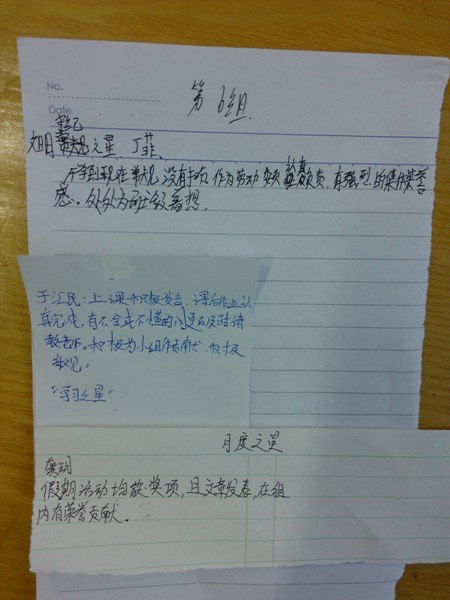 No.
第6组
Date
班纪
文明常规之星 丁菲.
开学到现在常规没有扣 作为劳动 认真负责,有强烈的集体荣誉
感。处处为班级着想.
于汇民:上课积极发言,课后作业认
真完成,有不会或不懂的问题会及时请
教老师。积极为小组作贡献,积极
常规。
“学习之星”
月度之星
龚玥
假期活动均获奖项,且文章发表,在组
内有荣誉贡献。